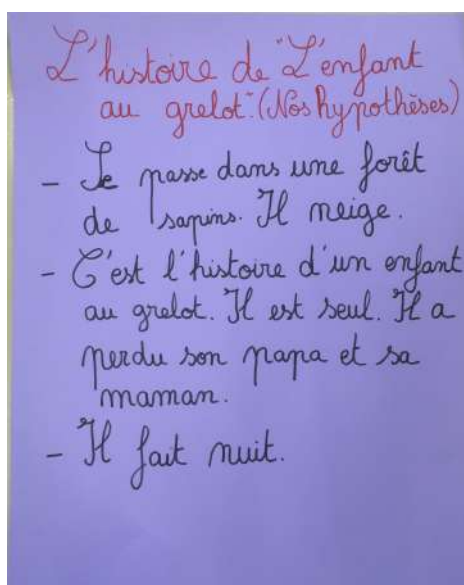 L'histoire de "L'enfant
au grelot". (Nos hypothèses)
- Se passe dans une forêt
de sapins. Il neige.
- C'est l'histoire d'un enfant
au grelot. Il est seul. Il a
perdu son papa et sa
maman.
- Il fait nuit.